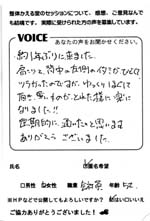 整体かえる堂のセッションについて、感想、ご意見なんで
も結構です。実際に受けられた方の声を募集しています。
VOICE
あなたの声をお聞かせください。
約1年ぶりに来ました。
首こりと、背中の左側のハリがひどくて
ツラかったのですが、ゆっくりほぐして
頂き、黒いものがとれた様に楽に
なりました!!
定期的に通いたいと思います
ありがとうございました。
氏名
匿名希望
□男性 女性 職業 年齢
※HPなどで公開してもよろしいですか? はい□いいえ
ご協力ありがとうございました!